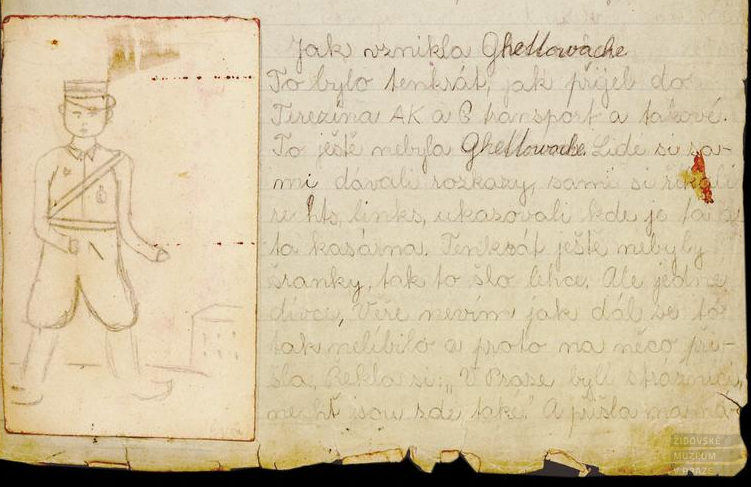 Jak vznikla Ghettowache
To bylo tenkrát, jak přijel do
Terezína AK a B transport a takové.
To ještě nebyla Ghettowache. Lidé si sa-
mi dávali rozkazy, sami si říkali
rechts, links, ukazovali kde je ta a
ta kasárna. Tenkrát ještě nebyly
šranky, tak to šlo lehce. Ale jedné
dívce, Věře nevím jak dál se to
tak nelíbilo a proto na něco při-
šla. Řekla si: „V Praze byli strážníci,
nechť jsou zde také." A přišla
ŽIDOVSKÉ
MUZEUM
V PRAZE